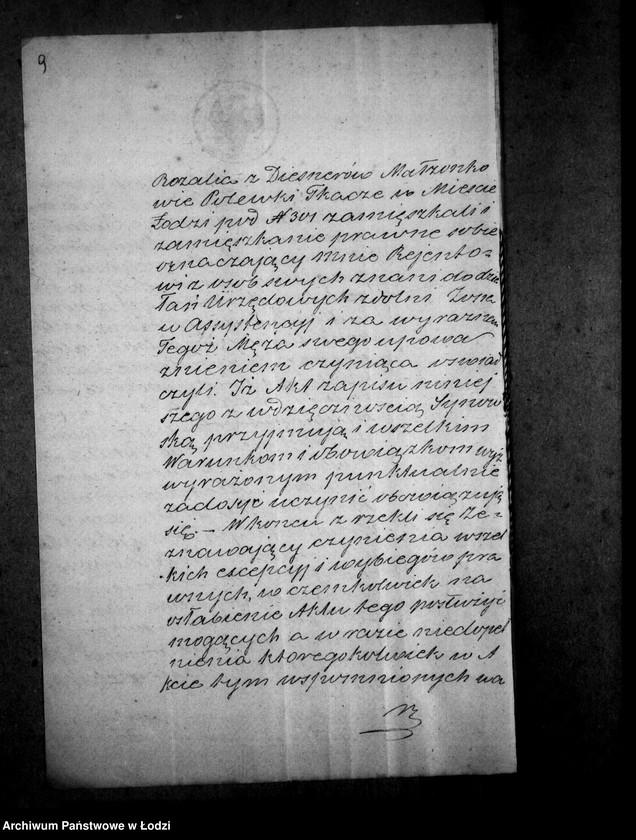 9
Rozalia z Diesnerów Małżonko
wie Polewki Tkacze w Mieście
Łodzi pod N 301 zamięszkali i
zamięszkanie prawne sobie
oznaczający mnie Rejento=
wi z osób swych znani do dzia
łań Urzędowych zdolni Żona
w Assystencyi i za wyraźnem
Tegoż Męża swego upowa
żnieniem czyniąca oświad
czyli. Iż Akt zapisu niniej
szego z wdzięcznością Synow
ską przyjmują i wszelkim
Warunkom i obowiązkom wyż
wyrażonym punktualnie
zadosyć uczynić obowiązują
się. — W końcu zrzekli się Ze=
znawający czynienia wszel
kich excepcyi i wybiegów pra
wnych, w czemkolwiek na
osłabienie Aktu tego posłużyć
mogących a w razie niedopeł
nienia któregokolwiek w A
kcie tym wspomnionych wa
Archiwum Państwowe w Łodzi